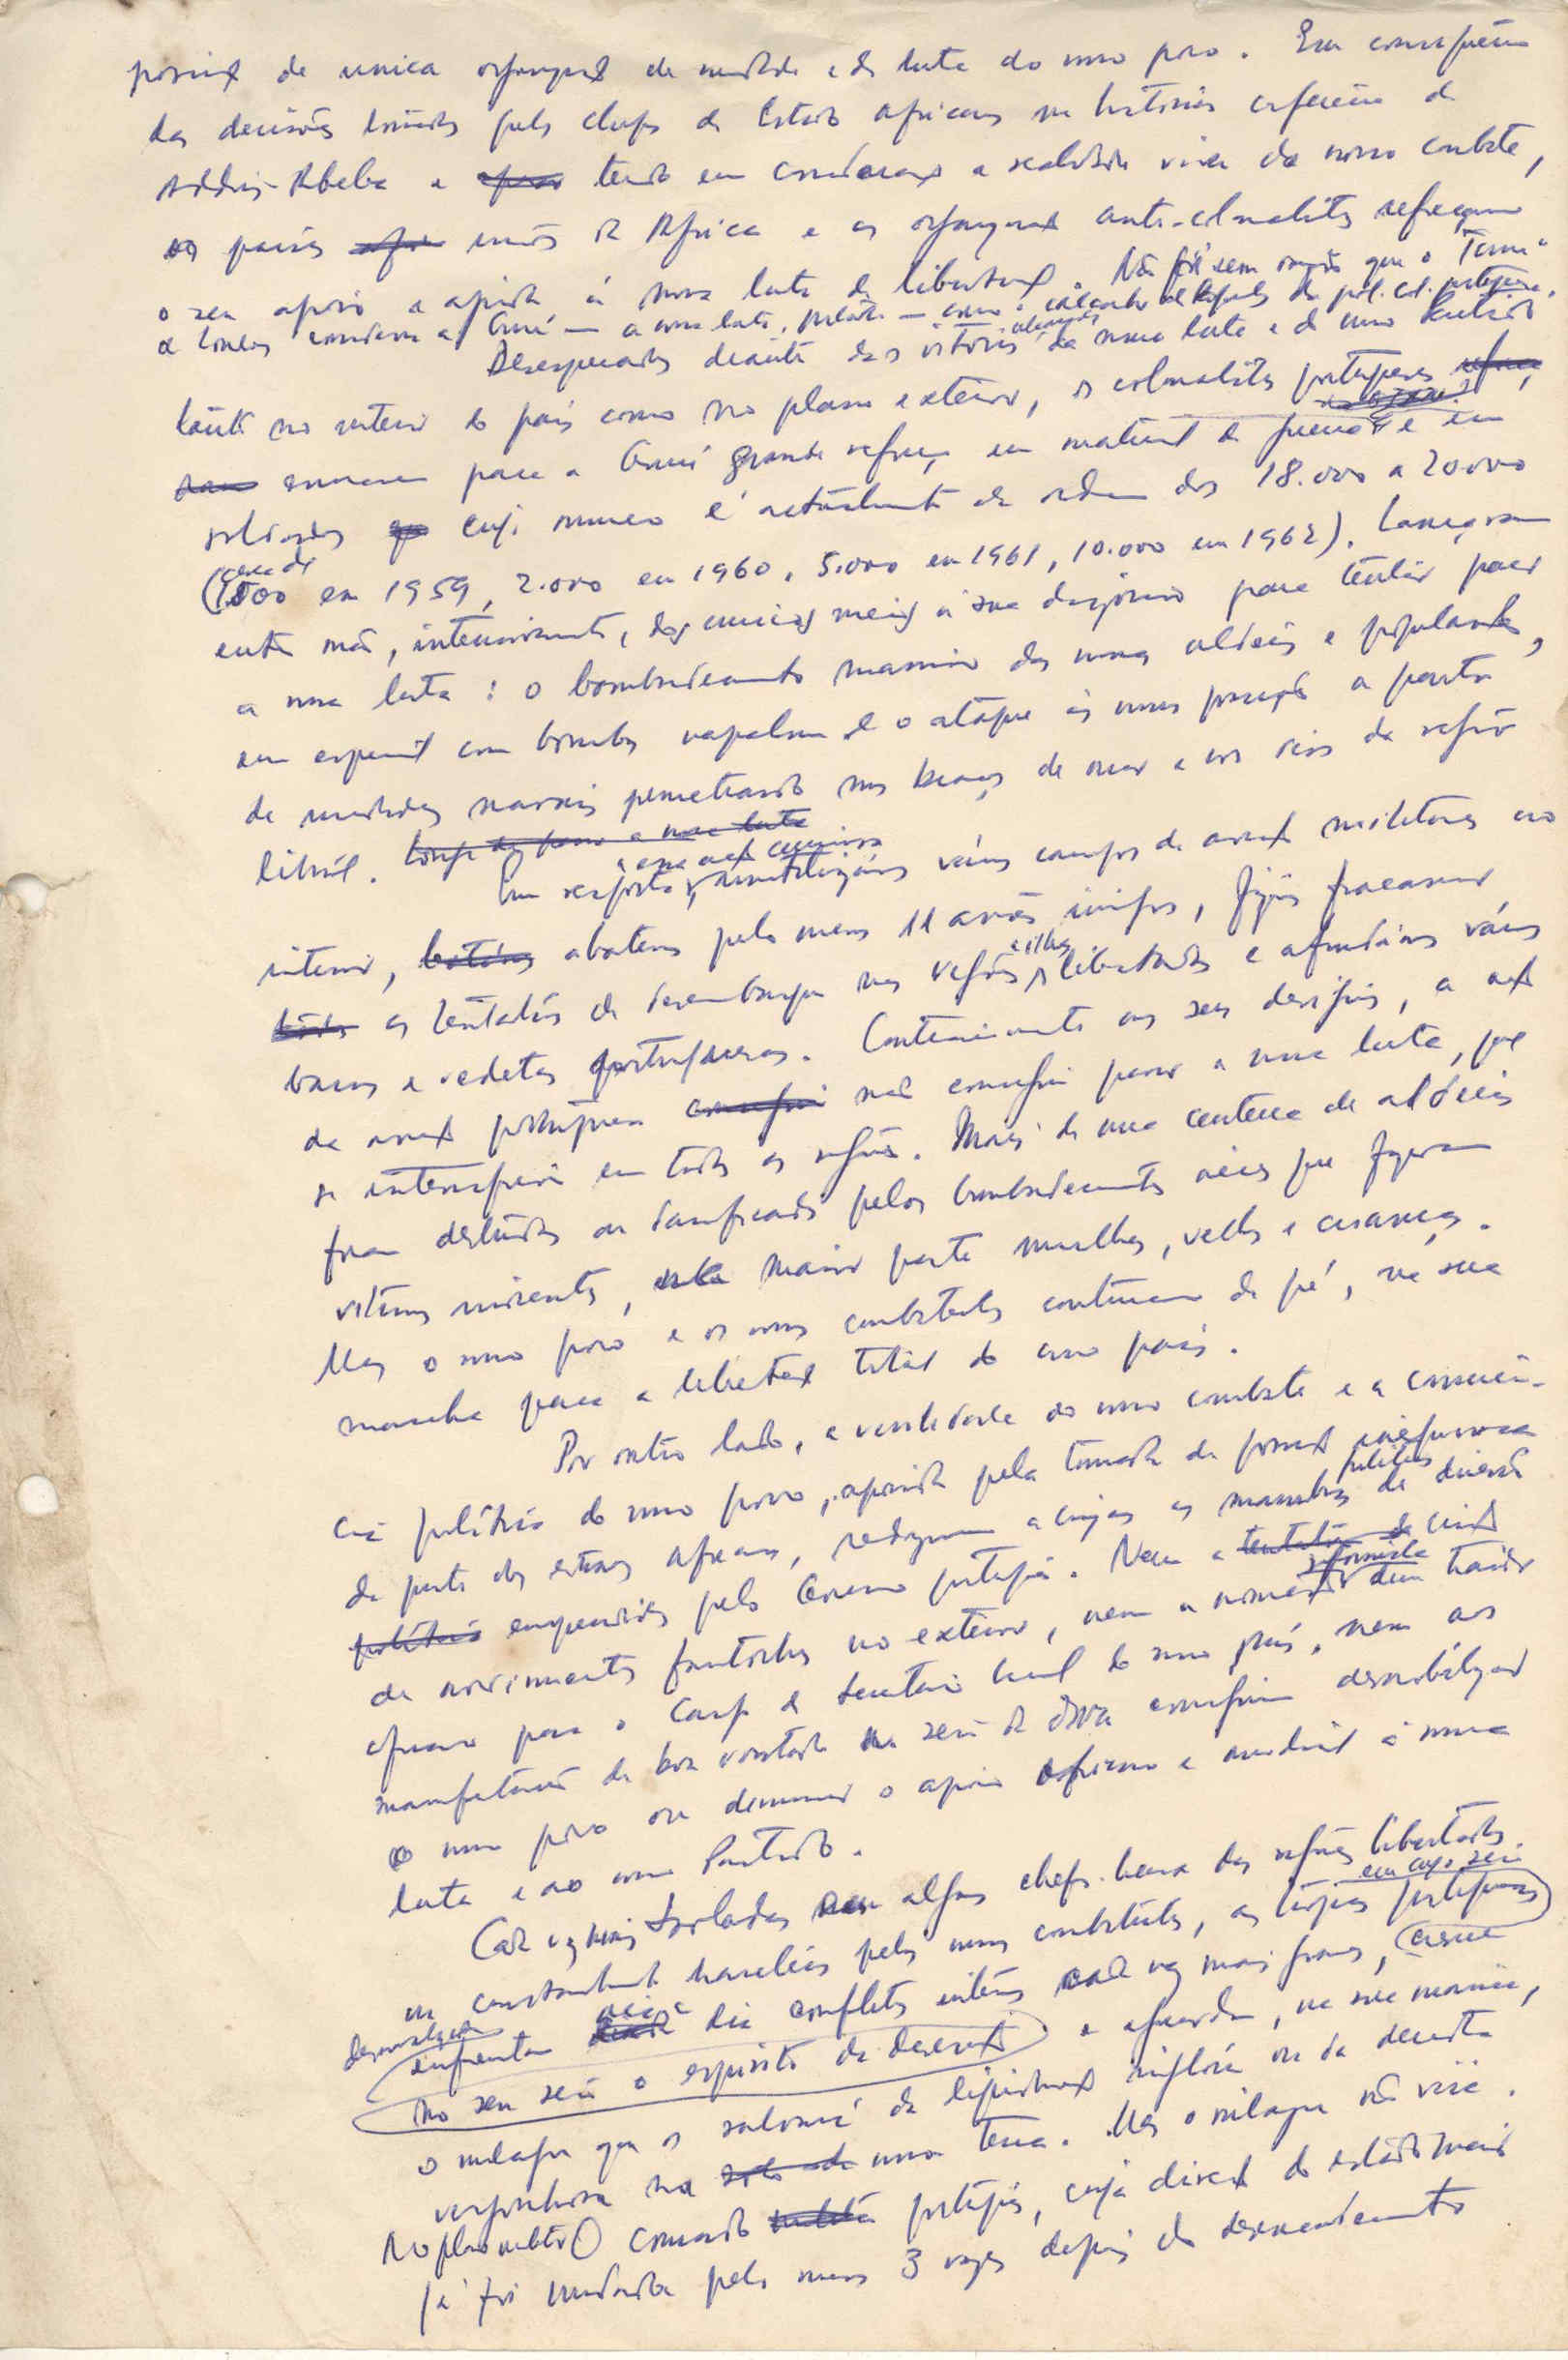 posição de unica organização de unidade e de luta do nosso povo. Em consequência
das decisões tomadas pelos chefes de Estado africanos na histórica conferência de
Addis-Abeba e tendo em consideração a realidade viva do nosso combate,
os países irmãos de Africa e as organizações anti-colonialistas reforçam
o seu apoio e ajuda á nossa luta de libertação. Não foi sem razão que o "Times"
de Londres considerou a Guiné — a nossa luta, portanto — como o calcanhar de Aquiles da pol. col. portuguesa.
Desesperados deante das vitórias alcançadas da nossa luta e do nosso Partido
tanto no interior do país como no plano exterior, os colonialistas portugueses
enviaram para a Guiné grande reforço em material de guerra e em
soldados cujo numero é actualmente da ordem dos 18.000 a 20000
(cerca de 1000 em 1959, 2.000 em 1960, 5.000 em 1961, 10.000 em 1962). Lançaram
então mão, intensivamente, dos unicos meios á sua disposição para tentar parar
a nossa luta: o bombardeamento massivo das nossas aldeias e populações,
em especial com bombas napalm e o ataque ás nossas posições a partir
de unidades navais penetrando nos braços de mar e nos rios da região
litoral.
Em resposta a essa acção criminosa, inutilizámos vários campos de aviação militares no
interior, abatemos pelo menos 11 aviões inimigos, fizémos fracassar
as tentativas de desembarque nas regiões e ilhas libertadas e afundámos vários
barcos e vedetas portugueses. Contrariamente aos seus designios, a acção
da aviação portuguesa não conseguiu parar a nossa luta, que
se intensificou em todas as regiões. Mais de uma centena de aldeias
foram destruidas ou danificadas pelos bombardeamentos aéreos que fizeram
vitimas inocentes, na maior parte mulheres, velhos e crianças.
Mas o nosso povo e os nossos combatentes continuam de pé, na sua
marcha para a libertação total do nosso país.
Por outro lado, a verdade do nosso combate e a consciên-
cia política do nosso povo, apoiada pela tomada de posição inequivoca
da parte dos estados africanos, reduziram a cinzas as manobras politicas de diversão
empreendidas pelo Governo português. Nem a criação
de movimentos fantoches no exterior, nem a nomeação dum traidor
africano para o cargo de Secretário Geral do nosso país, nem as
manifestações de boa vontade no seio da ONU conseguiram desmobilizar
o nosso povo ou diminuir o apoio africano e mundial á nossa
luta e ao nosso Partido.
Cada vez mais isoladas em alguns chefs-lieux das regiões libertadas,
constantemente pelos nossos combatentes, as tropas portuguesas, em cujo seio
desenvolvem
enfrentam dia a dia conflitos internos cada vez mais graves, cresce
no seu seio o espirito de deserção e aguardam, na sua maioria,
o milagre que os salvará da liquidação inglória ou da derrota
vergonhosa na nossa terra. Mas o milagre não virá.
No plano militar o comando português, cuja direcção do estado maior
já foi mudada pelo menos 3 vezes depois do desencadeamento